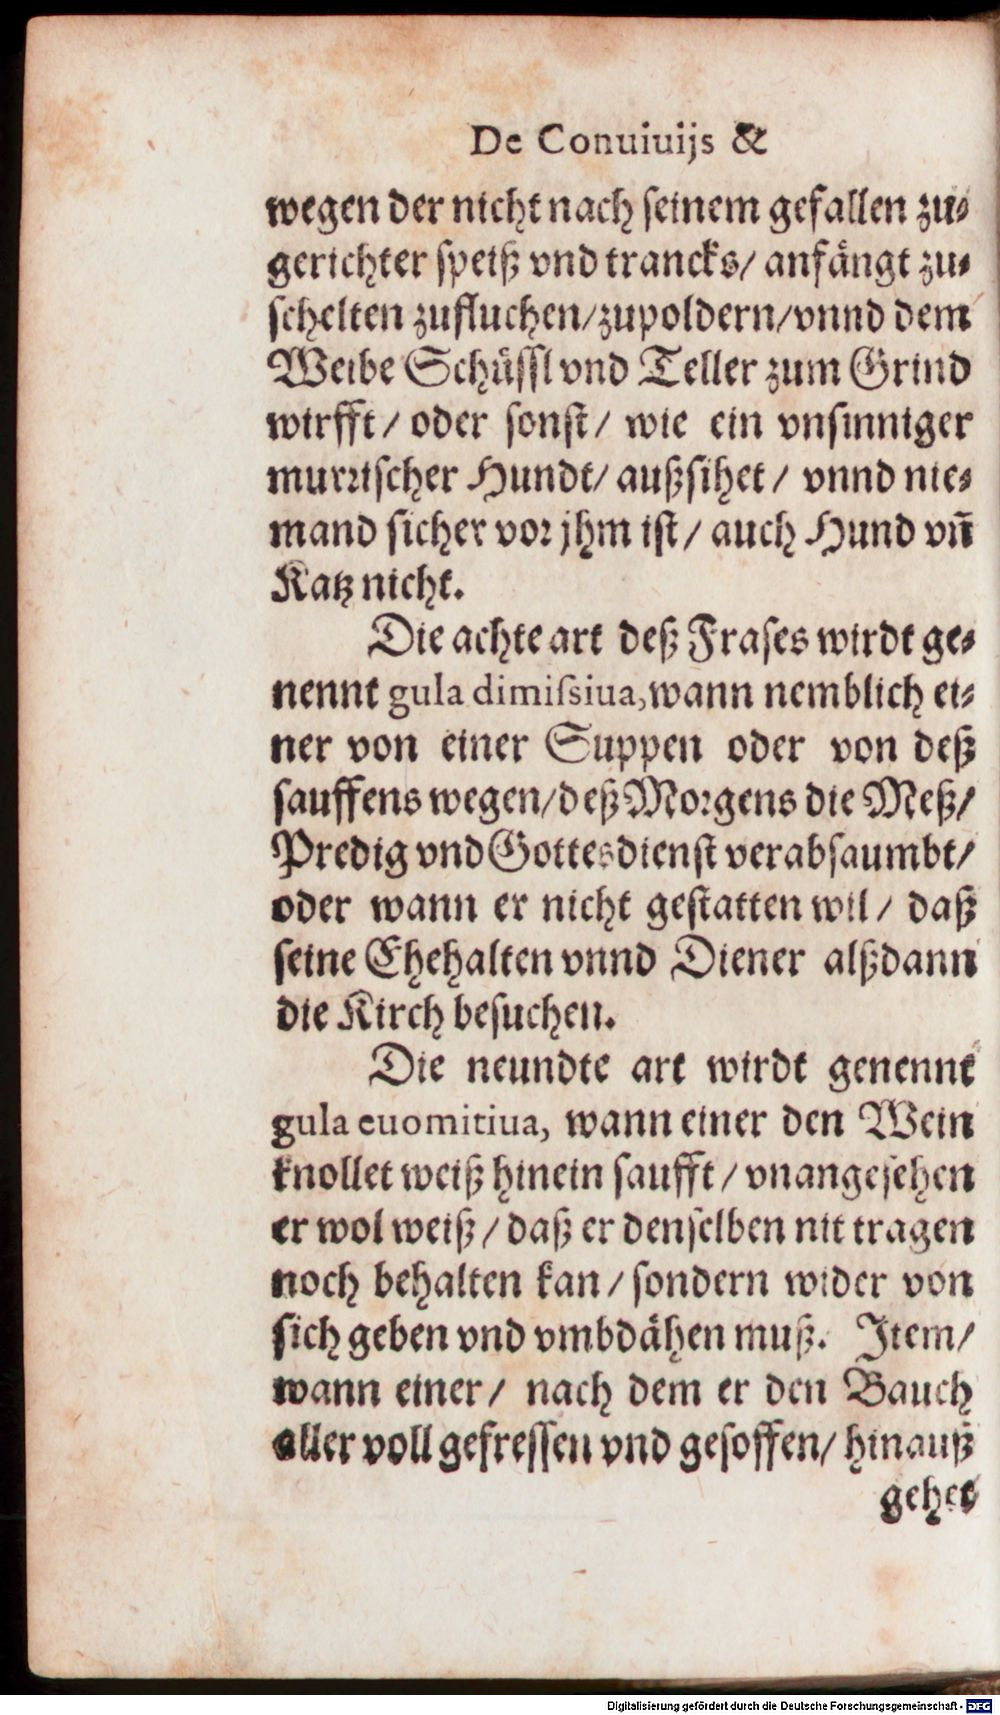 De Conuiuijs &
wegen der nicht nach ſeinem gefallen zu⸗
gerichter ſpeiß vnd trancks/ anfängt zu⸗
ſchelten zufluchen/zupoldern/vnnd dem
Weibe Schüſſl vnd Teller zum Grind
wirfft/ oder ſonſt/ wie ein vnſinniger
murꝛiſcher Hundt/ außſihet/ vnnd nie⸗
mand ſicher voꝛ jhm iſt/ auch Hund vn̄
Katz nicht.
Die achte art deß Fraſes wirdt ge⸗
nennt gula dimiſsiua, wann nemblich ei⸗
ner von einer Suppen oder von deß
ſauffens wegen/deß Moꝛgens die Meß/
Predig vnd Gottesdienſt verabſaumbt/
oder wann er nicht geſtatten wil/ daß
ſeine Ehehalten vnnd Diener alßdann
die Kirch beſuchen.
Die neundte art wirdt genennt
gula euomitiua, wann einer den Wein
knollet weiß hinein ſaufft/ vnangeſehen
er wol weiß/ daß er denſelben nit tragen
noch behalten kan/ ſondern wider von
ſich geben vnd vmbdähen muß. Item/
wann einer/ nach dem er den Bauch
aller voll gefreſſen vnd geſoffen/ hinauß
gehet
Digitalisierung gefördert durch die Deutsche Forschungsgemeinschaft - DFG